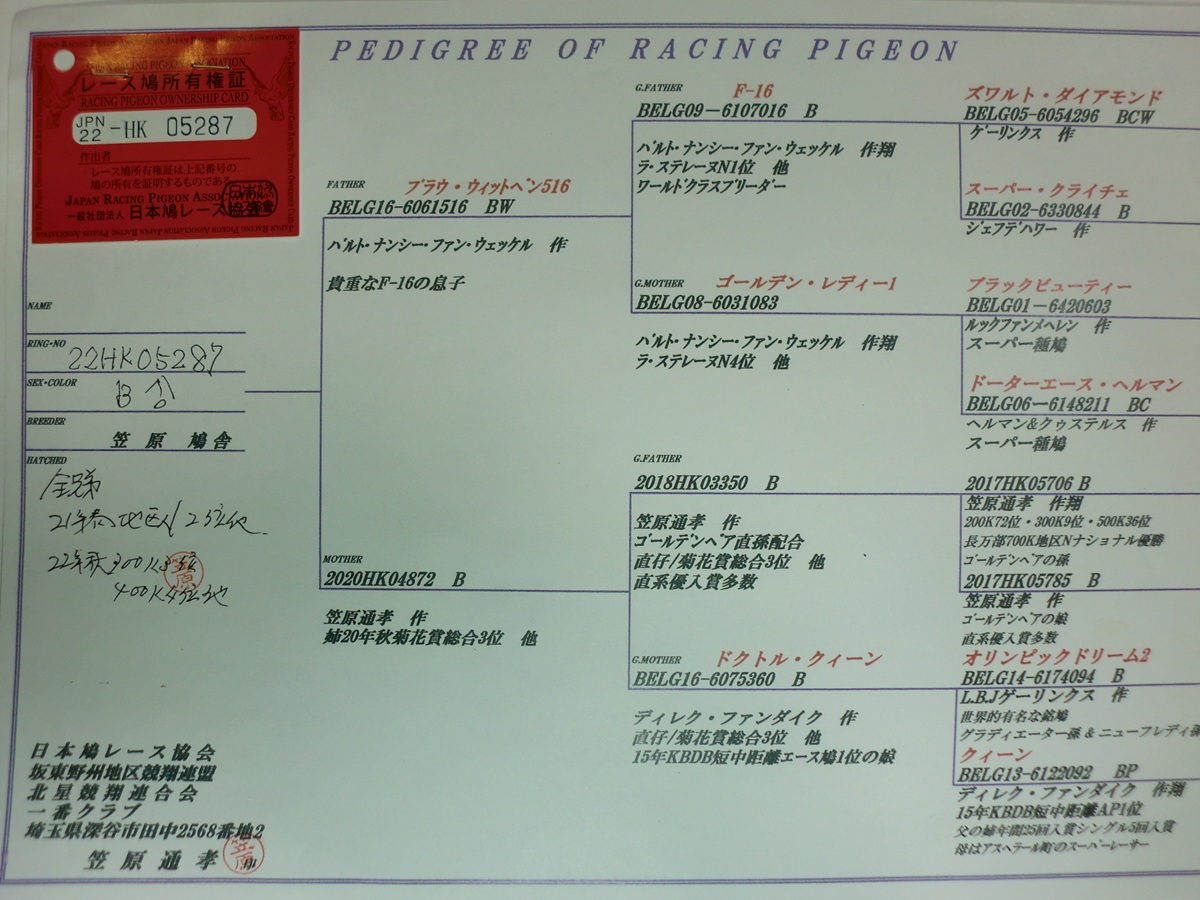 PEDIGREE OF RACING PIGEON
レース鳩所有権証
RACING PIGEON OWNERSHIP CARD
JPN 22 -HK 05287
作出者
レース鳩所有権証は上記番号の
鳩の所有を証明するものである
JAPAN RACING PIGEON ASSOCIATION
一般社団法人 日本鳩レース協会
NAME
RING・NO 22HK05287
SEX・COLOR B ♂
BREEDER
笠原 鳩舎
HATCHED
全兄弟
21年春 地区N 2位他
22年秋 300K3位
400K4位他
日本鳩レース協会
坂東野州地区競翔連盟
北星競翔連合会
一番クラブ
埼玉県深谷市田中2568番地2
笠原通孝 印
FATHER ブラウ・ウィットペン516
BELG16-6061516 BW
バルト・ナンシー・ファン・ウェッケル 作
貴重なF-16の息子
MOTHER
2020HK04872 B
笠原通孝 作
姉20年秋菊花賞総合3位 他
G.FATHER F-16
BELG09-6107016 B
バルト・ナンシー・ファン・ウェッケル 作翔
ラ・ステレーヌN1位 他
ワールドクラスブリーダー
G.MOTHER ゴールデン・レディー1
BELG08-6031083
バルト・ナンシー・ファン・ウェッケル 作翔
ラ・ステレーヌN4位 他
G.FATHER
2018HK03350 B
笠原通孝 作
ゴールデンペア直孫配合
直仔/菊花賞総合3位 他
直系優入賞多数
G.MOTHER ドクトル・クィーン
BELG16-6075360 B
ディレク・ファンダイク 作
直仔/菊花賞総合3位 他
15年KBDB短中距離エース鳩1位の娘
ズワルト・ダイアモンド
BELG05-6054296 BCW
ゲーリンクス 作
スーパー・クライチェ
BELG02-6330844 B
ジェフデハワー 作
ブラックビューティー
BELG01-6420603
ルックファンメヘレン 作
スーパー種鳩
ドーターエース・ヘルマン
BELG06-6148211 BC
ヘルマン&クゥステルス 作
スーパー種鳩
2017HK05706 B
笠原通孝 作翔
200K72位・300K9位・500K36位
長万部700K地区Nナショナル優勝
ゴールデンペアの孫
2017HK05785 B
笠原通孝 作
ゴールデンペアの娘
直系優入賞多数
オリンピックドリーム2
BELG14-6174094 B
L.B.Jゲーリンクス 作
世界的有名な銘鳩
グラディエーター孫 & ニューフレディ孫
クィーン
BELG13-6122092 BP
ディレク・ファンダイク 作翔
15年KBDB短中距離AP1位
父の姉年間25回入賞シングル5回入賞
母はアスヘラール町のスーパーレーサー